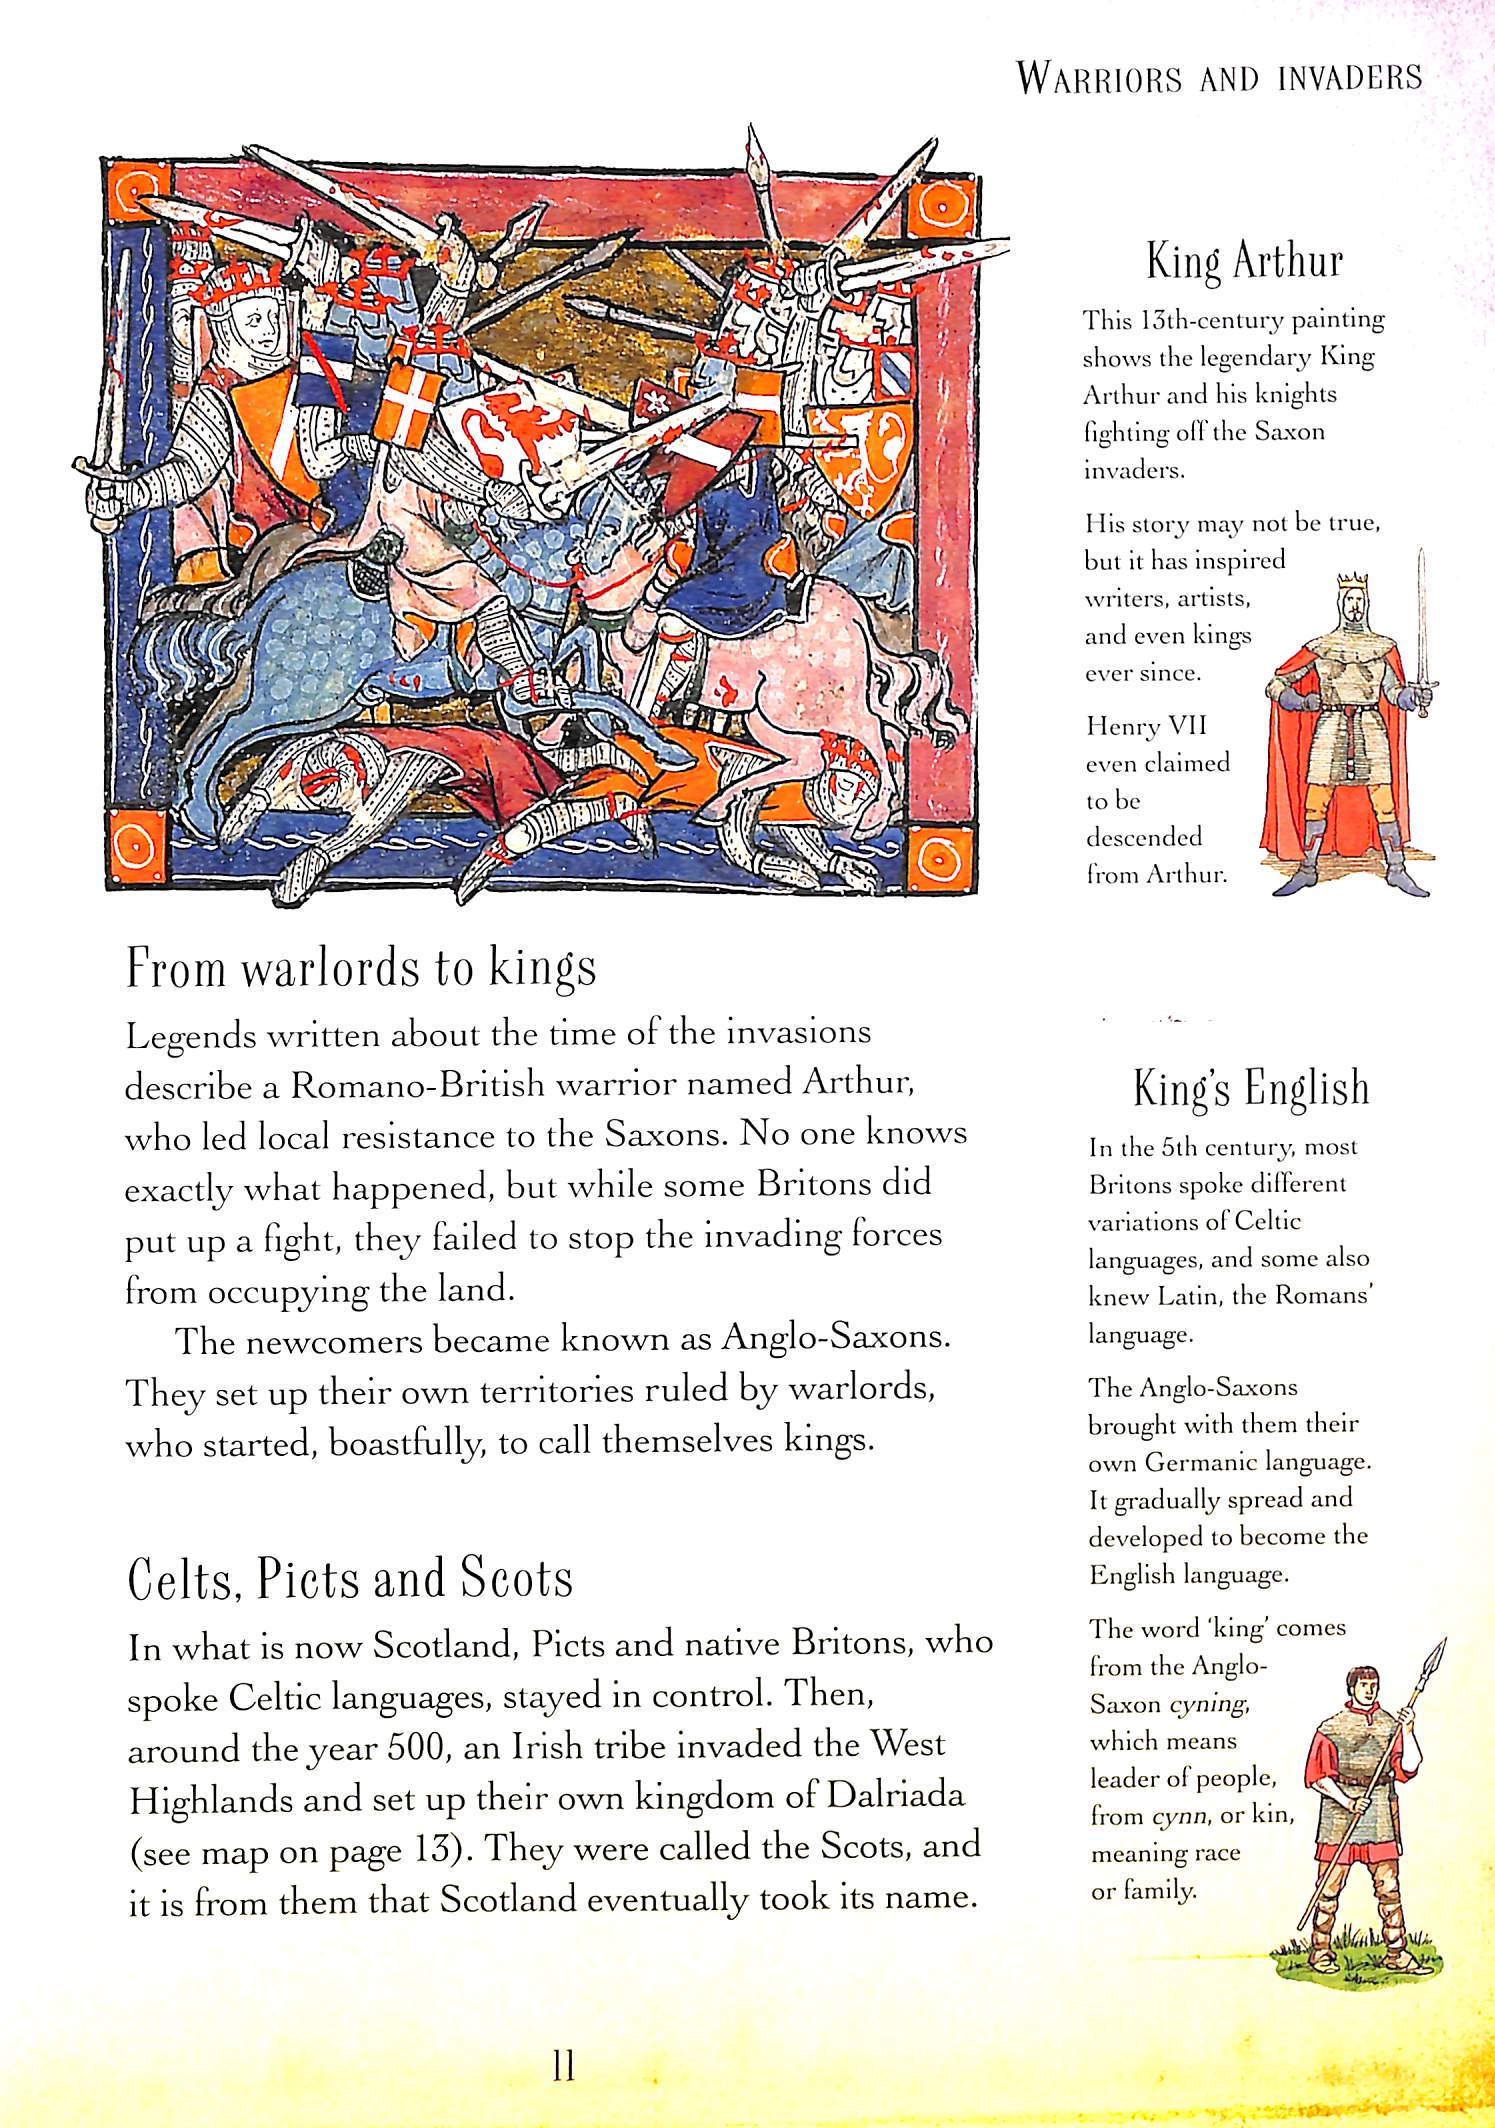 Warriors and invaders
King Arthur
This 13th-century painting
shows the legendary King
Arthur and his knights
fighting off the Saxon
invaders.
His story may not be true,
but it has inspired
writers, artists,
and even kings
ever since.
Henry VII
even claimed
to be
descended
from Arthur.
From warlords to kings
Legends written about the time of the invasions
describe a Romano-British warrior named Arthur,
who led local resistance to the Saxons. No one knows
exactly what happened, but while some Britons did
put up a fight, they failed to stop the invading forces
from occupying the land.
The newcomers became known as Anglo-Saxons.
They set up their own territories ruled by warlords,
who started, boastfully, to call themselves kings.
Celts, Picts and Scots
In what is now Scotland, Picts and native Britons, who
spoke Celtic languages, stayed in control. Then,
around the year 500, an Irish tribe invaded the West
Highlands and set up their own kingdom of Dalriada
(see map on page 13). They were called the Scots, and
it is from them that Scotland eventually took its name.
King's English
In the 5th century, most
Britons spoke different
variations of Celtic
languages, and some also
knew Latin, the Romans'
language.
The Anglo-Saxons
brought with them their
own Germanic language.
It gradually spread and
developed to become the
English language.
The word 'king' comes
from the Anglo-
Saxon cyning,
which means
leader of people,
from cynn, or kin,
meaning race
or family.
11